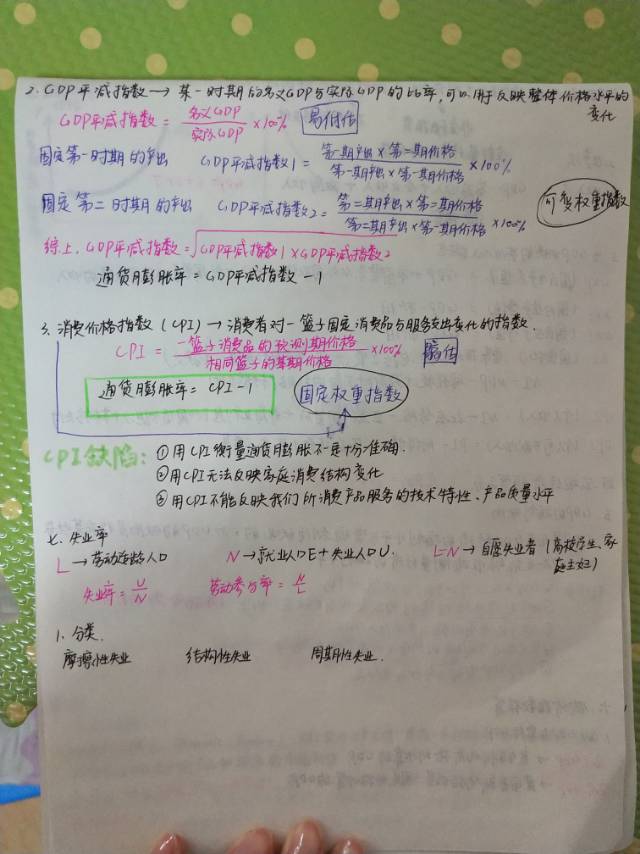 2. GDP平减指数 → 某一时期的名义GDP与实际GDP的比率,可以用于反映整体价格水平的变化
GDP平减指数 = 名义GDP / 实际GDP ×100% 易低估
固定第一时期的产出 GDP平减指数1 = 第一期产出×第二期价格 / 第一期产出×第一期价格 ×100%
固定第二时期的产出 GDP平减指数2 = 第二期产出×第二期价格 / 第二期产出×第一期价格 ×100% 可变权重指数
综上,GDP平减指数 = √GDP平减指数1×GDP平减指数2
通货膨胀率 = GDP平减指数 - 1
3. 消费价格指数 (CPI) → 消费者对一篮子固定消费品与服务支出变化的指数.
CPI = 一篮子消费品的预测期价格 / 相同篮子的基期价格 ×100% 高估
通货膨胀率 = CPI - 1 固定权重指数
CPI缺陷: ①用CPI衡量通货膨胀不一定十分准确.
②用CPI无法反映家庭消费结构变化
③用CPI不能反映我们所消产品服务的技术特性、产品质量水平
七. 失业率
L → 劳动年龄人口 N → 就业人口E + 失业人口U. L-N → 自愿失业者 (高校学生、家庭主妇)
失业率 = U/N 劳动参与率 = N/L
1. 分类.
摩擦性失业 结构性失业 周期性失业.